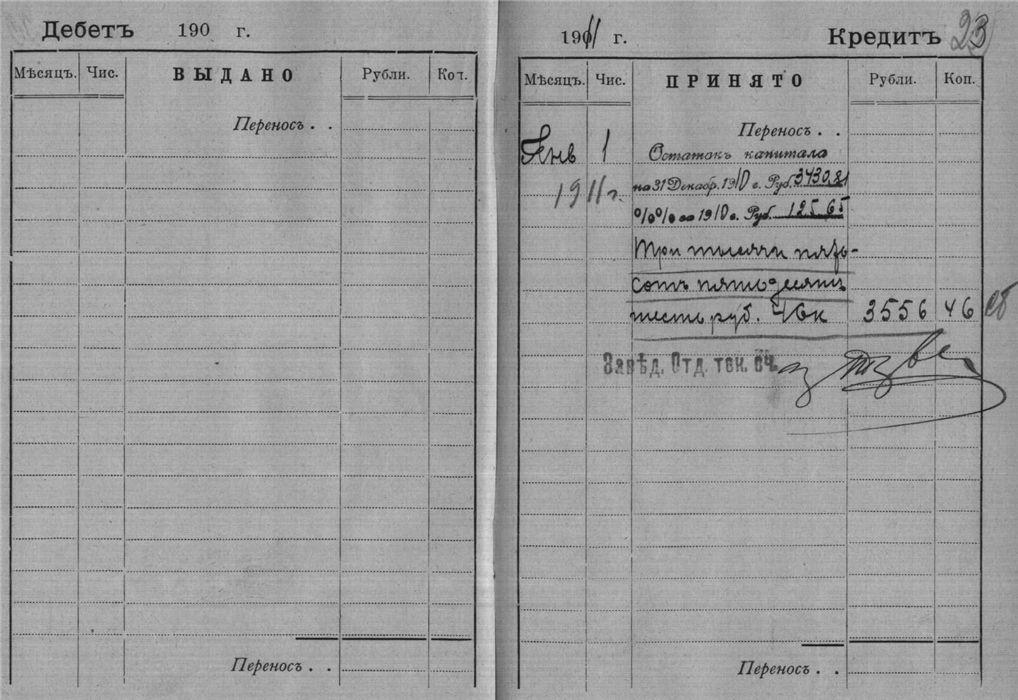 Дебетъ 190 г.
Мѣсяцъ. Чис. ВЫДАНО Рубли. Коп.
Переносъ . .
Переносъ . .
1911 г. Кредитъ 23
Мѣсяцъ. Чис. ПРИНЯТО Рубли. Коп.
Переносъ . .
Янв 1 Остатокъ капитала
1911 г. на 31 Декабр. 1910 г. Руб. 3430.81
%% за 1910 г. Руб. 125.65
Три тысячи пять-
сотъ пятьдесятъ
шесть руб. 46к 3556 46
Завѣд. Отд. тек. сч.
Переносъ . .